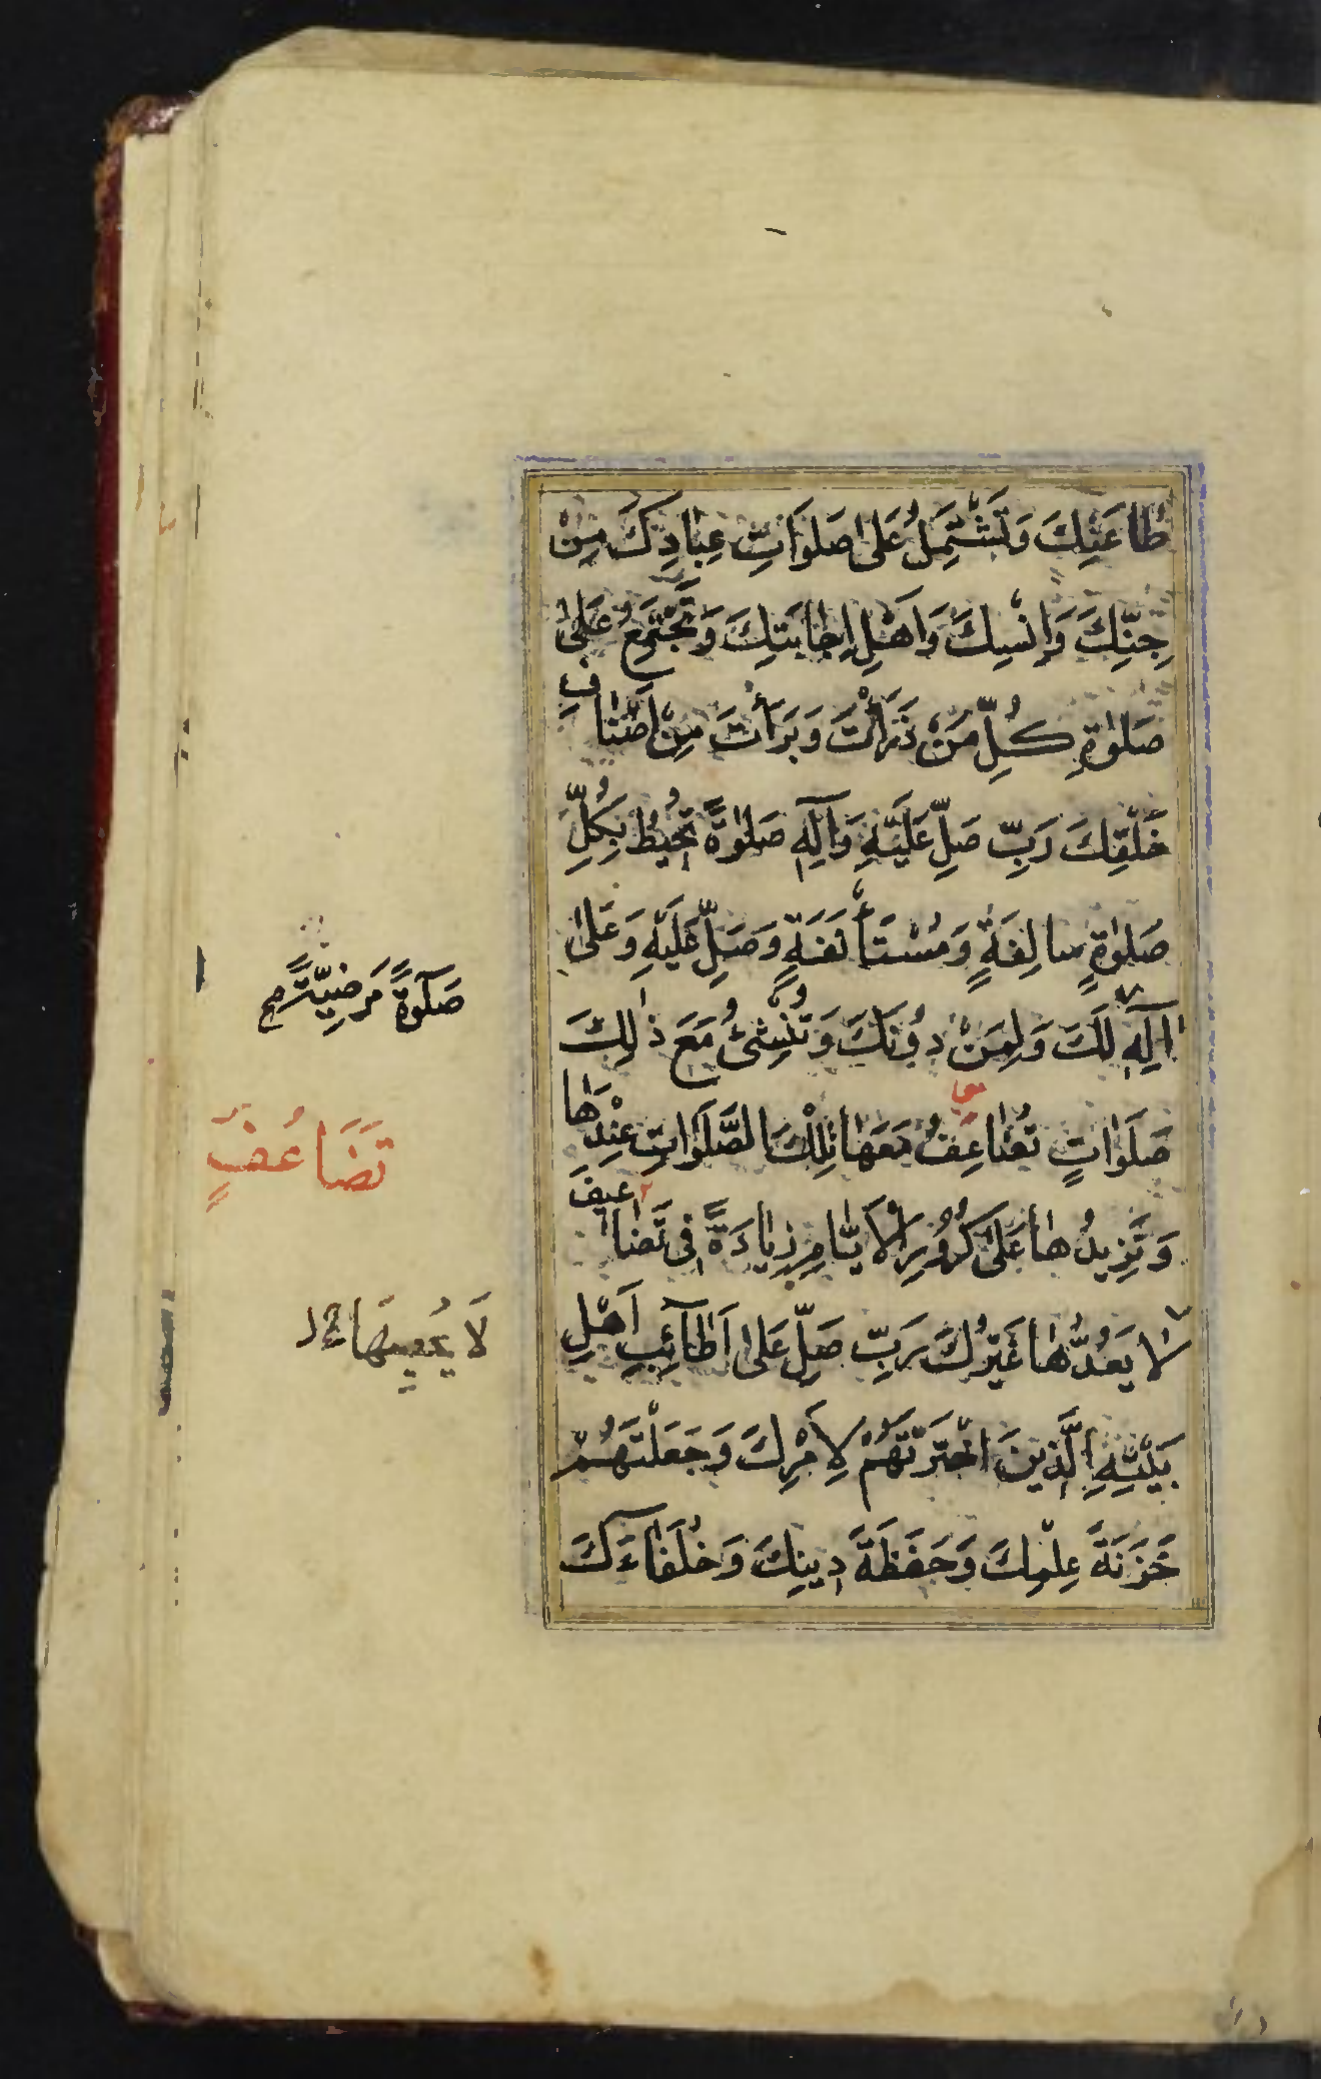 طٰاعَتِكَ وَتَشْتَمِلُ عَلىٰ صَلَوَاتِ عِبٰادِكَ مِنْ
جِنِّكَ وَاِنْسِكَ وَاَهْلِ اِجٰابَتِكَ وَتَجْتَمِعُ عَلىٰ
صَلٰوةِ كُلِّ مَنْ ذَرَأْتَ وَبَرَأْتَ مِنْ اَصْنٰافِ
خَلْقِكَ رَبِّ صَلِّ عَلَيْهِ وَآلِهِ صَلٰوةً تُحِيطُ بِكُلِّ
صَلٰوةٍ سٰالِفَةٍ وَمُسْتَأْنَفَةٍ وَصَلِّ عَلَيْهِ وَعَلىٰ
اٰلِهِ لَكَ وَلِمَنْ دُونَكَ وَتُنْشِئُ مَعَ ذٰلِكَ
صَلَوٰاتٍ تُضٰاعِفُ مَعَهٰا تِلْكَ الصَّلَوٰاتِ عِنْدَهٰا
وَتَزِيدُهٰا عَلىٰ كُرُورِ الْاَيّٰامِ زِيٰادَةً فِى تَضٰاعِيفَ
لٰا يَعُدُّهٰا غَيْرُكَ رَبِّ صَلِّ عَلىٰ اَطٰآئِبِ اَهْلِ
بَيْتِهِ الَّذِينَ اخْتَرْتَهُمْ لِاَمْرِكَ وَجَعَلْتَهُمْ
خَزَنَةَ عِلْمِكَ وَحَفَظَةَ دِينِكَ وَخُلَفٰآءَكَ
صَلٰوةً مَرْضِيَّةً صح
تَضَاعُفٍ
لَا